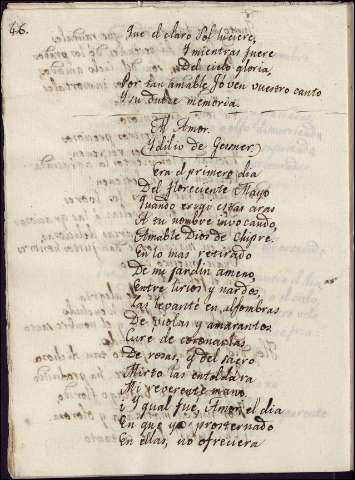 46.
Que el claro Sol luciere,
Y mientras fuere
Del cielo gloria,
Por tan amable Jóven vuestro canto
Y su dulze memoria.
El Amor.
(Ydilio de Gesner)
Era el primero dia
Del floreciente Mayo
Quando erugi estas aras
A tu nombre invocando,
Amable Dios de Chipre.
En lo mas retirado
De mi jardin ameno,
Entre lirios y nardos,
Las levanté en alfombras
De violas y amarantos.
Cure de coronarlas
De rosas, y del sacro
Mirto las entoldára
Mi reverente mano.
¿Y qual fue, Amor, el dia
En que yo prosternado
En ellas, no ofreciera